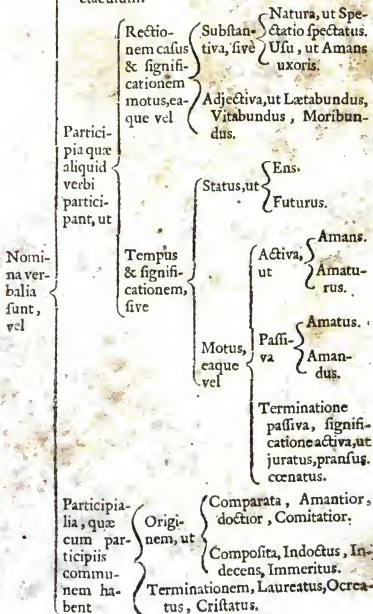 Nomi-
na ver-
balia
sunt,
vel
Partici-
pia quæ
aliquid
verbi
partici-
pant, ut
Rectio-
nem casus
& signifi-
cationem
motus, ea-
que vel
Substan-
tiva, sivè
Natura, ut Spe-
ctatio spectatus.
Usu, ut Amans
uxoris.
Adjectiva, ut Lætabundus,
Vitabundus, Moribun-
dus.
Tempus
& signifi-
cationem,
sive
Status, ut
Ens.
Futurus.
Motus,
eaque
vel
Activa,
ut
Amans.
Amatu-
rus.
Passi-
va
Amatus.
Aman-
dus.
Terminatione
passiva, signifi-
catione activa, ut
juratus, pransus.
cœnatus.
Participia-
lia, quæ
cum par-
ticipiis
commu-
nem ha-
bent
Origi-
nem, ut
Comparata, Amantior,
doctior, Comitatior.
Composita, Indoctus, In-
decens, Immeritus.
Terminationem, Laureatus, Ocrea-
tus, Cristatus.